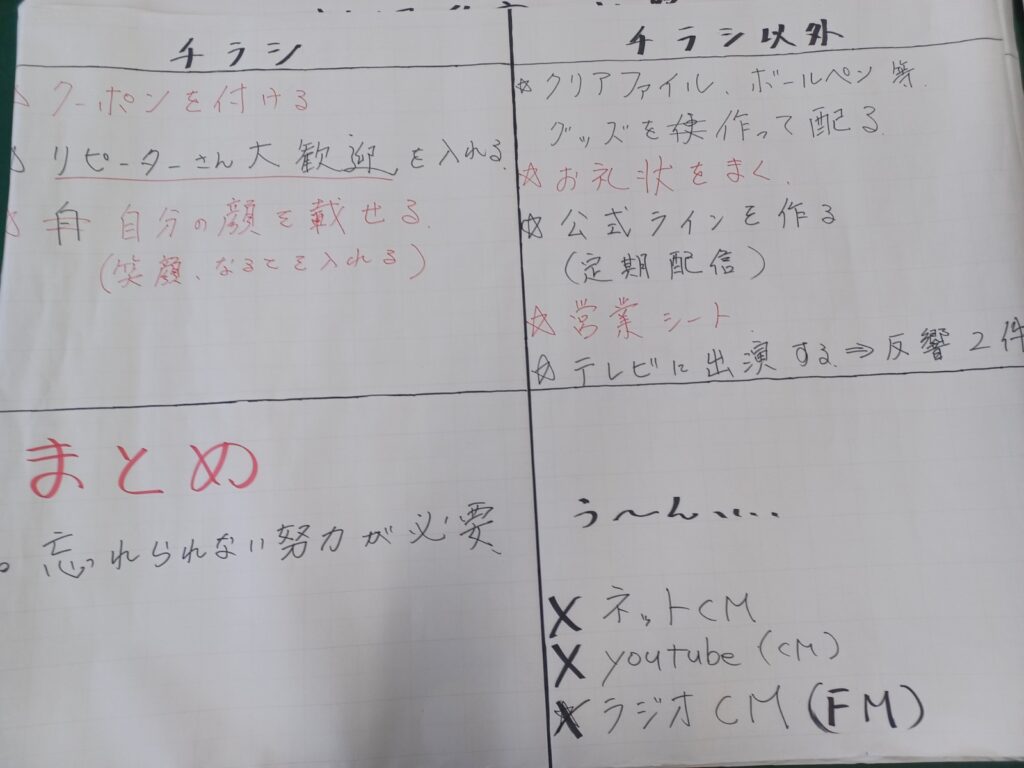 チラシ
☆ クーポンを付ける
☆ リピーターさん大歓迎を入れる
☆ 自分の顔を載せる
(笑顔、なることを入れる)
チラシ以外
☆ クリアファイル、ボールペン等
グッズを作って配る
☆ お礼状をまく、
☆ 公式ラインを作る
(定期配信)
☆ 営業シート
☆ テレビに出演する⇒反響2件
まとめ
○ 忘れられない努力が必要
う〜ん、、、、
X ネットCM
X youtube (CM)
X ラジオCM (FM)